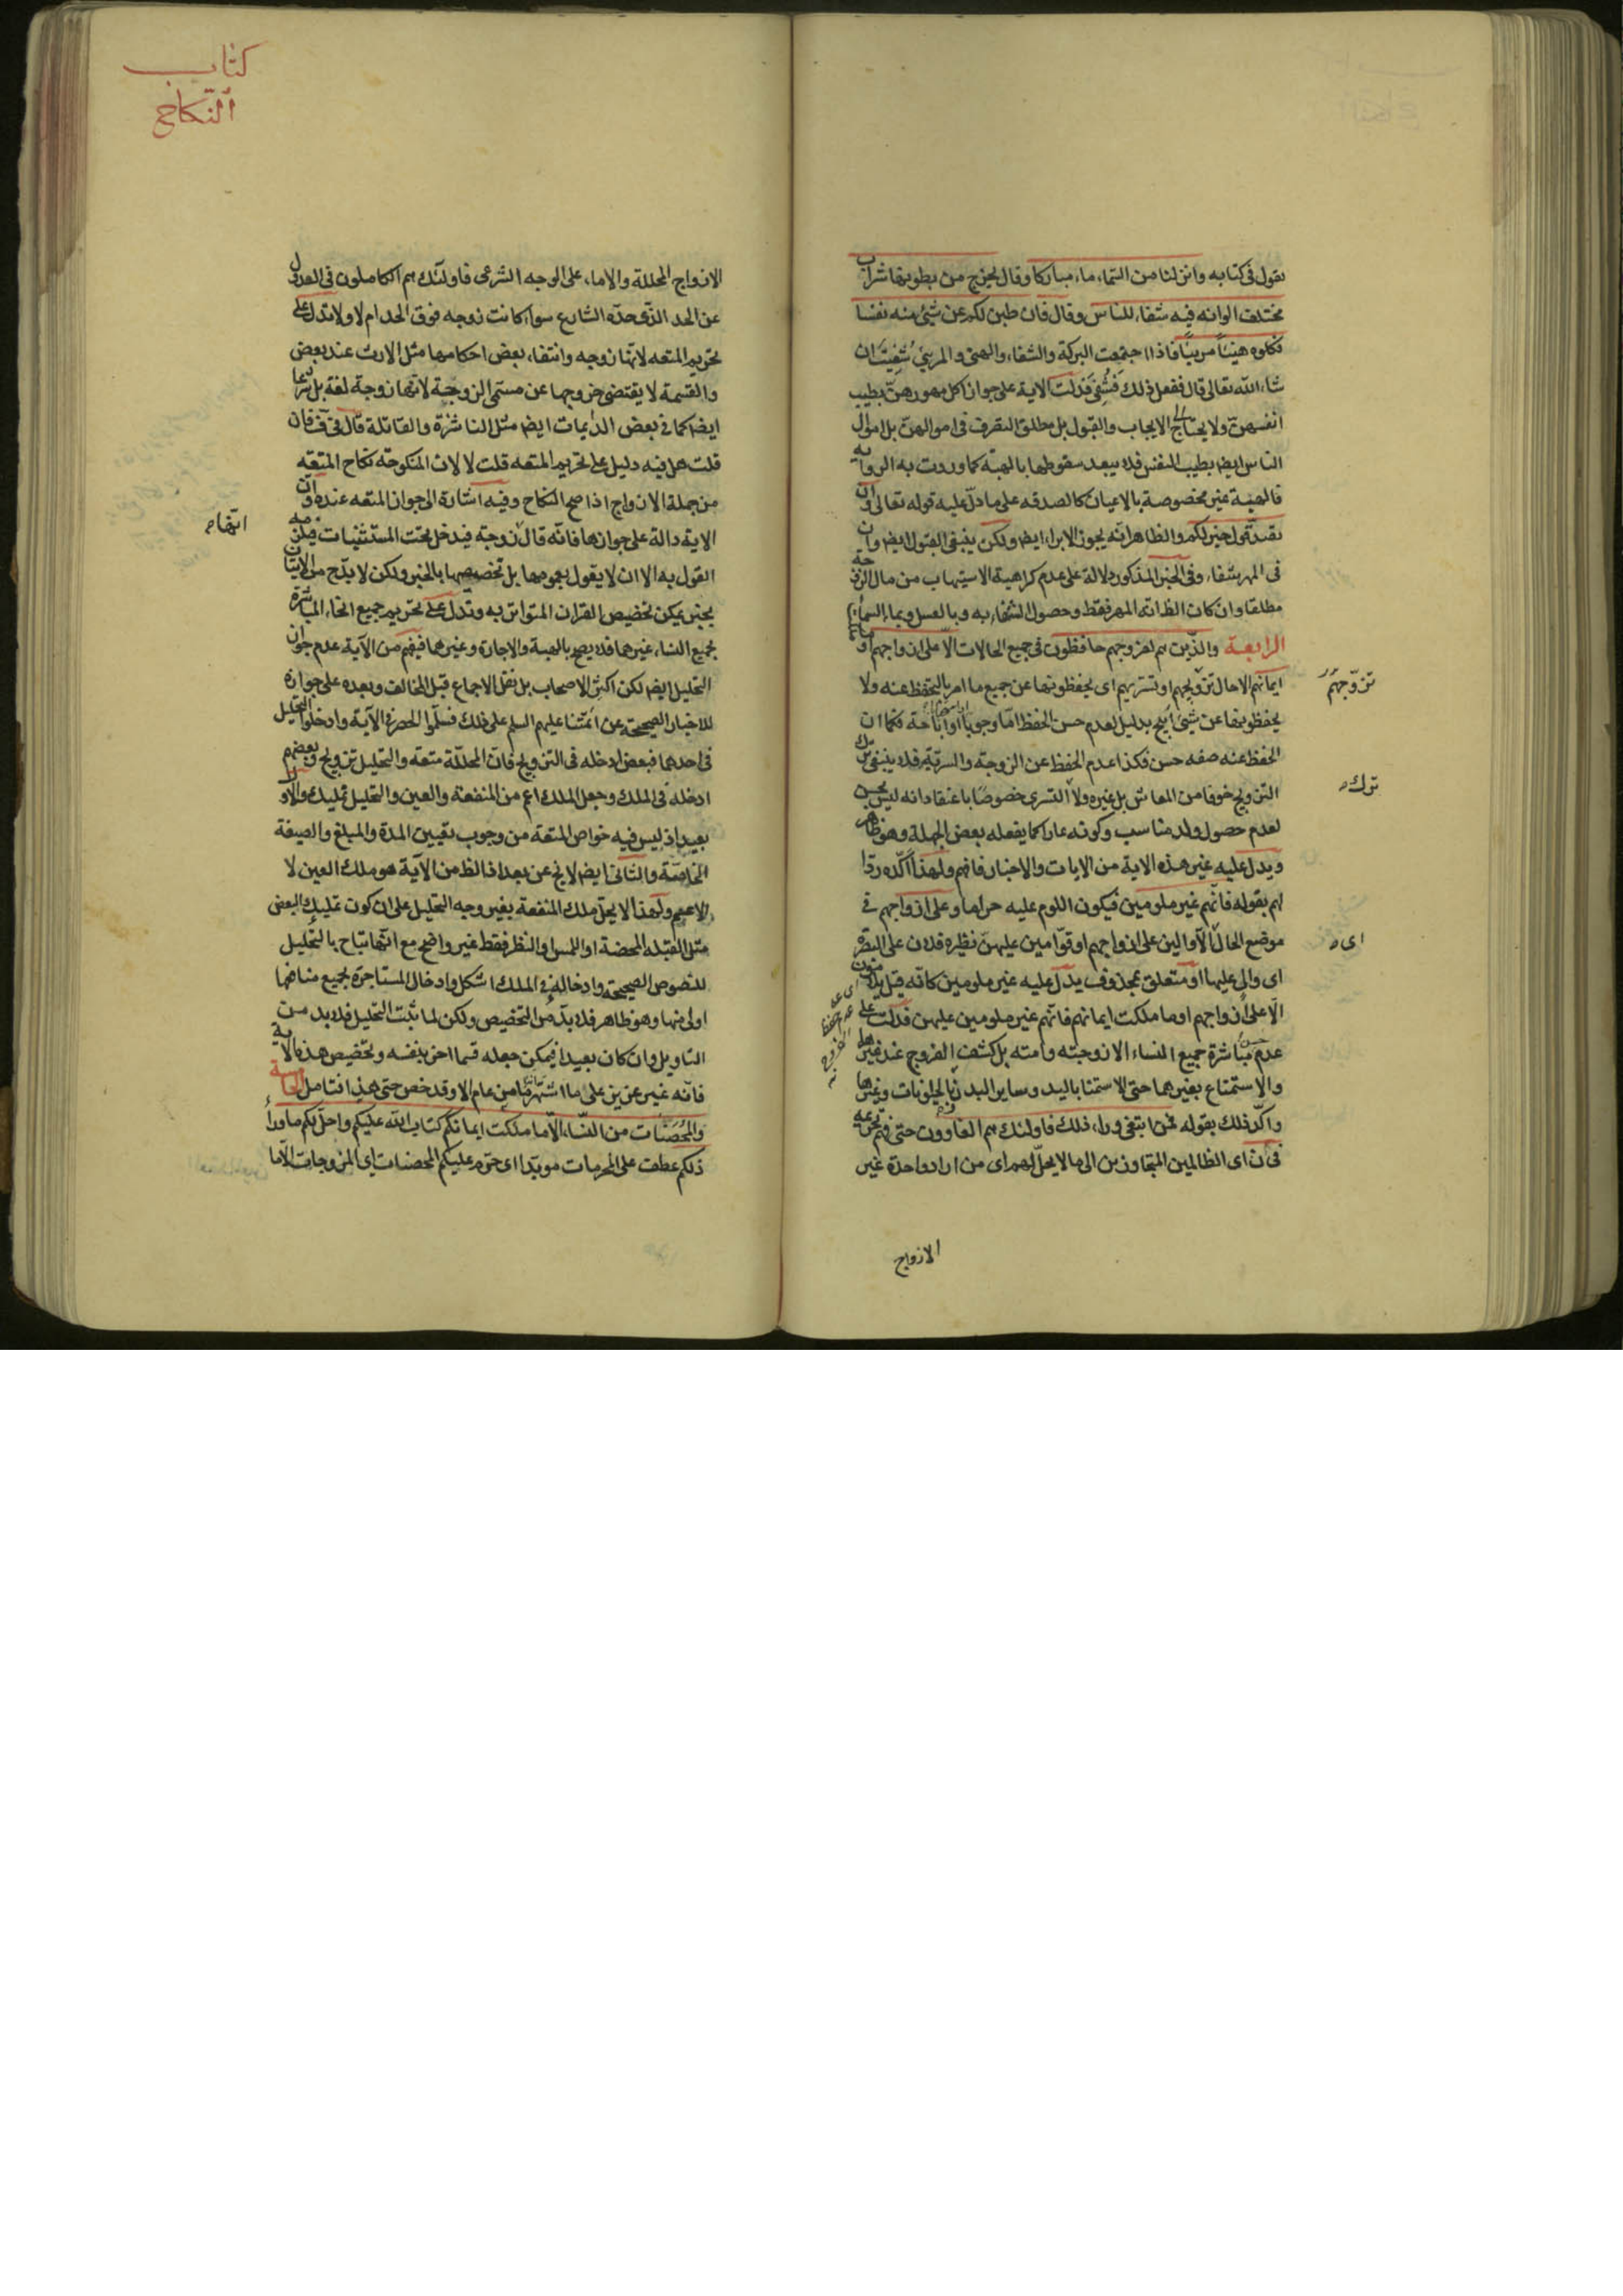 يقول في كتابه وانزلنا من السماء ماء مباركا وقال يخرج من بطونها شراب
مختلف الوانه فيه شفاء للناس وقال فان طبن لكم عن شيئ منه نفسا
فكلوه هنيئاً مريئاً فاذا اجتمعت البركة والشفاء والهنئ والمريئ شُفيتَ ان
شاء الله تعالى قال ففعل ذلك فشُفِيَ فدلت الاية على جواز اكل مهورهنّ بطيب
انفسهنّ ولا يحتاج الى الايجاب والقبول بل مطلق التصرف في اموالهنّ بل اموال
الناس ايضا بطيب النفس فلا يبعد سقوطها بالهبة كما وردت به الرواية
فالهبة غير مخصوصة بالاعيان كالصدقه على ما دلّ عليه قوله تعالى وان
تصدقوا خير لكم والظاهر انّه يجوز الابراء ايضا ولكن ينبغي القبول ايضا وان
في المهر شفاء وفي الخبر المذكور دلالة على عدم كراهية الاستيهاب من مال الزوجة
مطلقا وان كان الظ انّه المهر فقط وحصول الشفاء به وبالعسل وبماء السماء
الرابعة والذين هم لفروجهم حافظون في جميع الحالات الّا على ازواجهم او ما ملكت
ايمانهم الا حال تزويجهم او تسريهم اى يحفظونها عن جميع ما امر بالتحفظ عنه ولا
يحفظونها عن شيئ ابيح بدليل لعدم حسن الحفظ امّا وجوباً او اباحة فكما ان
الحفظ عنه صفه حسن فكذا عدم الحفظ عن الزوجة والسرّية فلا ينبغي ترك
التزويج خوفا من المعاش بل غيره ولا التسري خصوصًا باعتقاد انه ليس بحسن
لعدم حصول ولد مناسب وكونه عارا كما يفعله بعض الجهلة وهو ظاهر
ويدل عليه غير هذه الاية من الايات والاخبار فافهم ولهذا اكّده ردّا
لهم بقوله فانّهم غير ملومين فيكون اللوم عليه حراما وعلى ازواجهم في
موضع الحال الّا والين على ازواجهم او قوّامين عليهنّ نظيره فلان على البصرة
اى والى عليها او متعلق بمحذوف يدل عليه غير ملومين كانّه قيل يلامون
الّا على ازواجهم او ما ملكت ايمانهم فانّهم غير ملومين عليهن فدلت على
عدم مباشرة جميع النساء الا زوجته وامته بل كشف الفروج عند غيرها
والاستمتاع بغيرهما حتى الاستمنا باليد وساير البدن بالحيوانات وغيرها
واكّد ذلك بقوله فمن ابتغى وراء ذلك فاولئك هم العادون
اى الظالمين المتجاوزين الى ما لا يحلّ لهم اى من اراد واحدة غير
الازواج
تزوّجهم
ترك
اى
كتاب
النكاح
الازواج المحللة والاماء على الوجه الشرعى فاولئك هم الكاملون في العدول
عن الحد الذى حدّه الشارع سواء كانت زوجه فوق الحد ام لا ولا تدل على
تحريم المتعه لانّها زوجه وانتفاء بعض احكامها مثل الارث عند بعض
والقسمة لا يقتضى خروجها عن مسمى الزوجية لانّها زوجة لغة بل شرعا
ايضا كما في بعض الدايمات ايضا مثل الناشزة والقاتلة قال في ف فان
قلت هل فيه دليل على تحريم المتعه قلت لا لان المنكوحة نكاح المتعه
من جملة الازواج اذا صح النكاح وفيه اشارة الى جواز المتعه عنده وان
الاية دالة على جوازها فانّه قال زوجة فيدخل تحت المستثنيات فيلزمه
القول به الا ان لا يقول بعمومها بل تخصيصها بالخبر ولكن لا بدّ ح من الاتيان
بخبر يمكن تخصيص القران المتواتر به وتدل على تحريم جميع انحاء المباشرة
بجميع النساء غيرهما فلا يصح بالهبة والاجارة وغيرها فيفهم من الآية عدم جواز
التحليل ايضا لكن اكثر الاصحاب بل نقل الاجماع قبل المخالف وبعده على جوازه
للاخبار الصحيحة عن ائمّتنا عليهم السلم على ذلك فسلّموا الحصر في الآية وادخلوا التحليل
في احدهما فبعض ادخله في التزويج فانّ المحللة متعه والتحليل تزويج وبعضهم
ادخله في الملك وجعل الملك اعم من المنفعة والعين والتحليل تمليك والاول
بعيد اذ ليس فيه خواص المتعة من وجوب تعيين المدة والمبلغ والصيغة
الخاصّة والثانى ايضا لا يخ عن بعد اذ الظ من الآية هو ملك العين لا
الاعم ولهذا لا يحلّ ملك المنفعة بغير وجه التحليل على ان كون تمليك البعض
مثل القبله المحضة او اللمس او النظر فقط غير واضح مع انّها تباح بالتحليل
للنصوص الصحيحة وادخاله في الملك اشكل وادخال المستاجرة لجميع منافعها
اولى منها وهو ظاهر فلا بدّ من التخصيص ولكن لما ثبت التحليل فلا بد من
التاويل وان كان بعيدا فيمكن جعله قسما اخر بنفسه وتخصيص هذه الاية
فانّه غير عزيز على ما اشتهر ما من عام الا وقد خص حتى هذا فتامل الخامسة
والمُحصَنات من النساء الّا ما ملكت ايمانكم كتاب الله عليكم واحلّ لكم ما وراء
ذلكم عطف على المحرمات موبدّا اى حرّم عليكم المحصنات اى المزوجات الّا ما
انتهاء